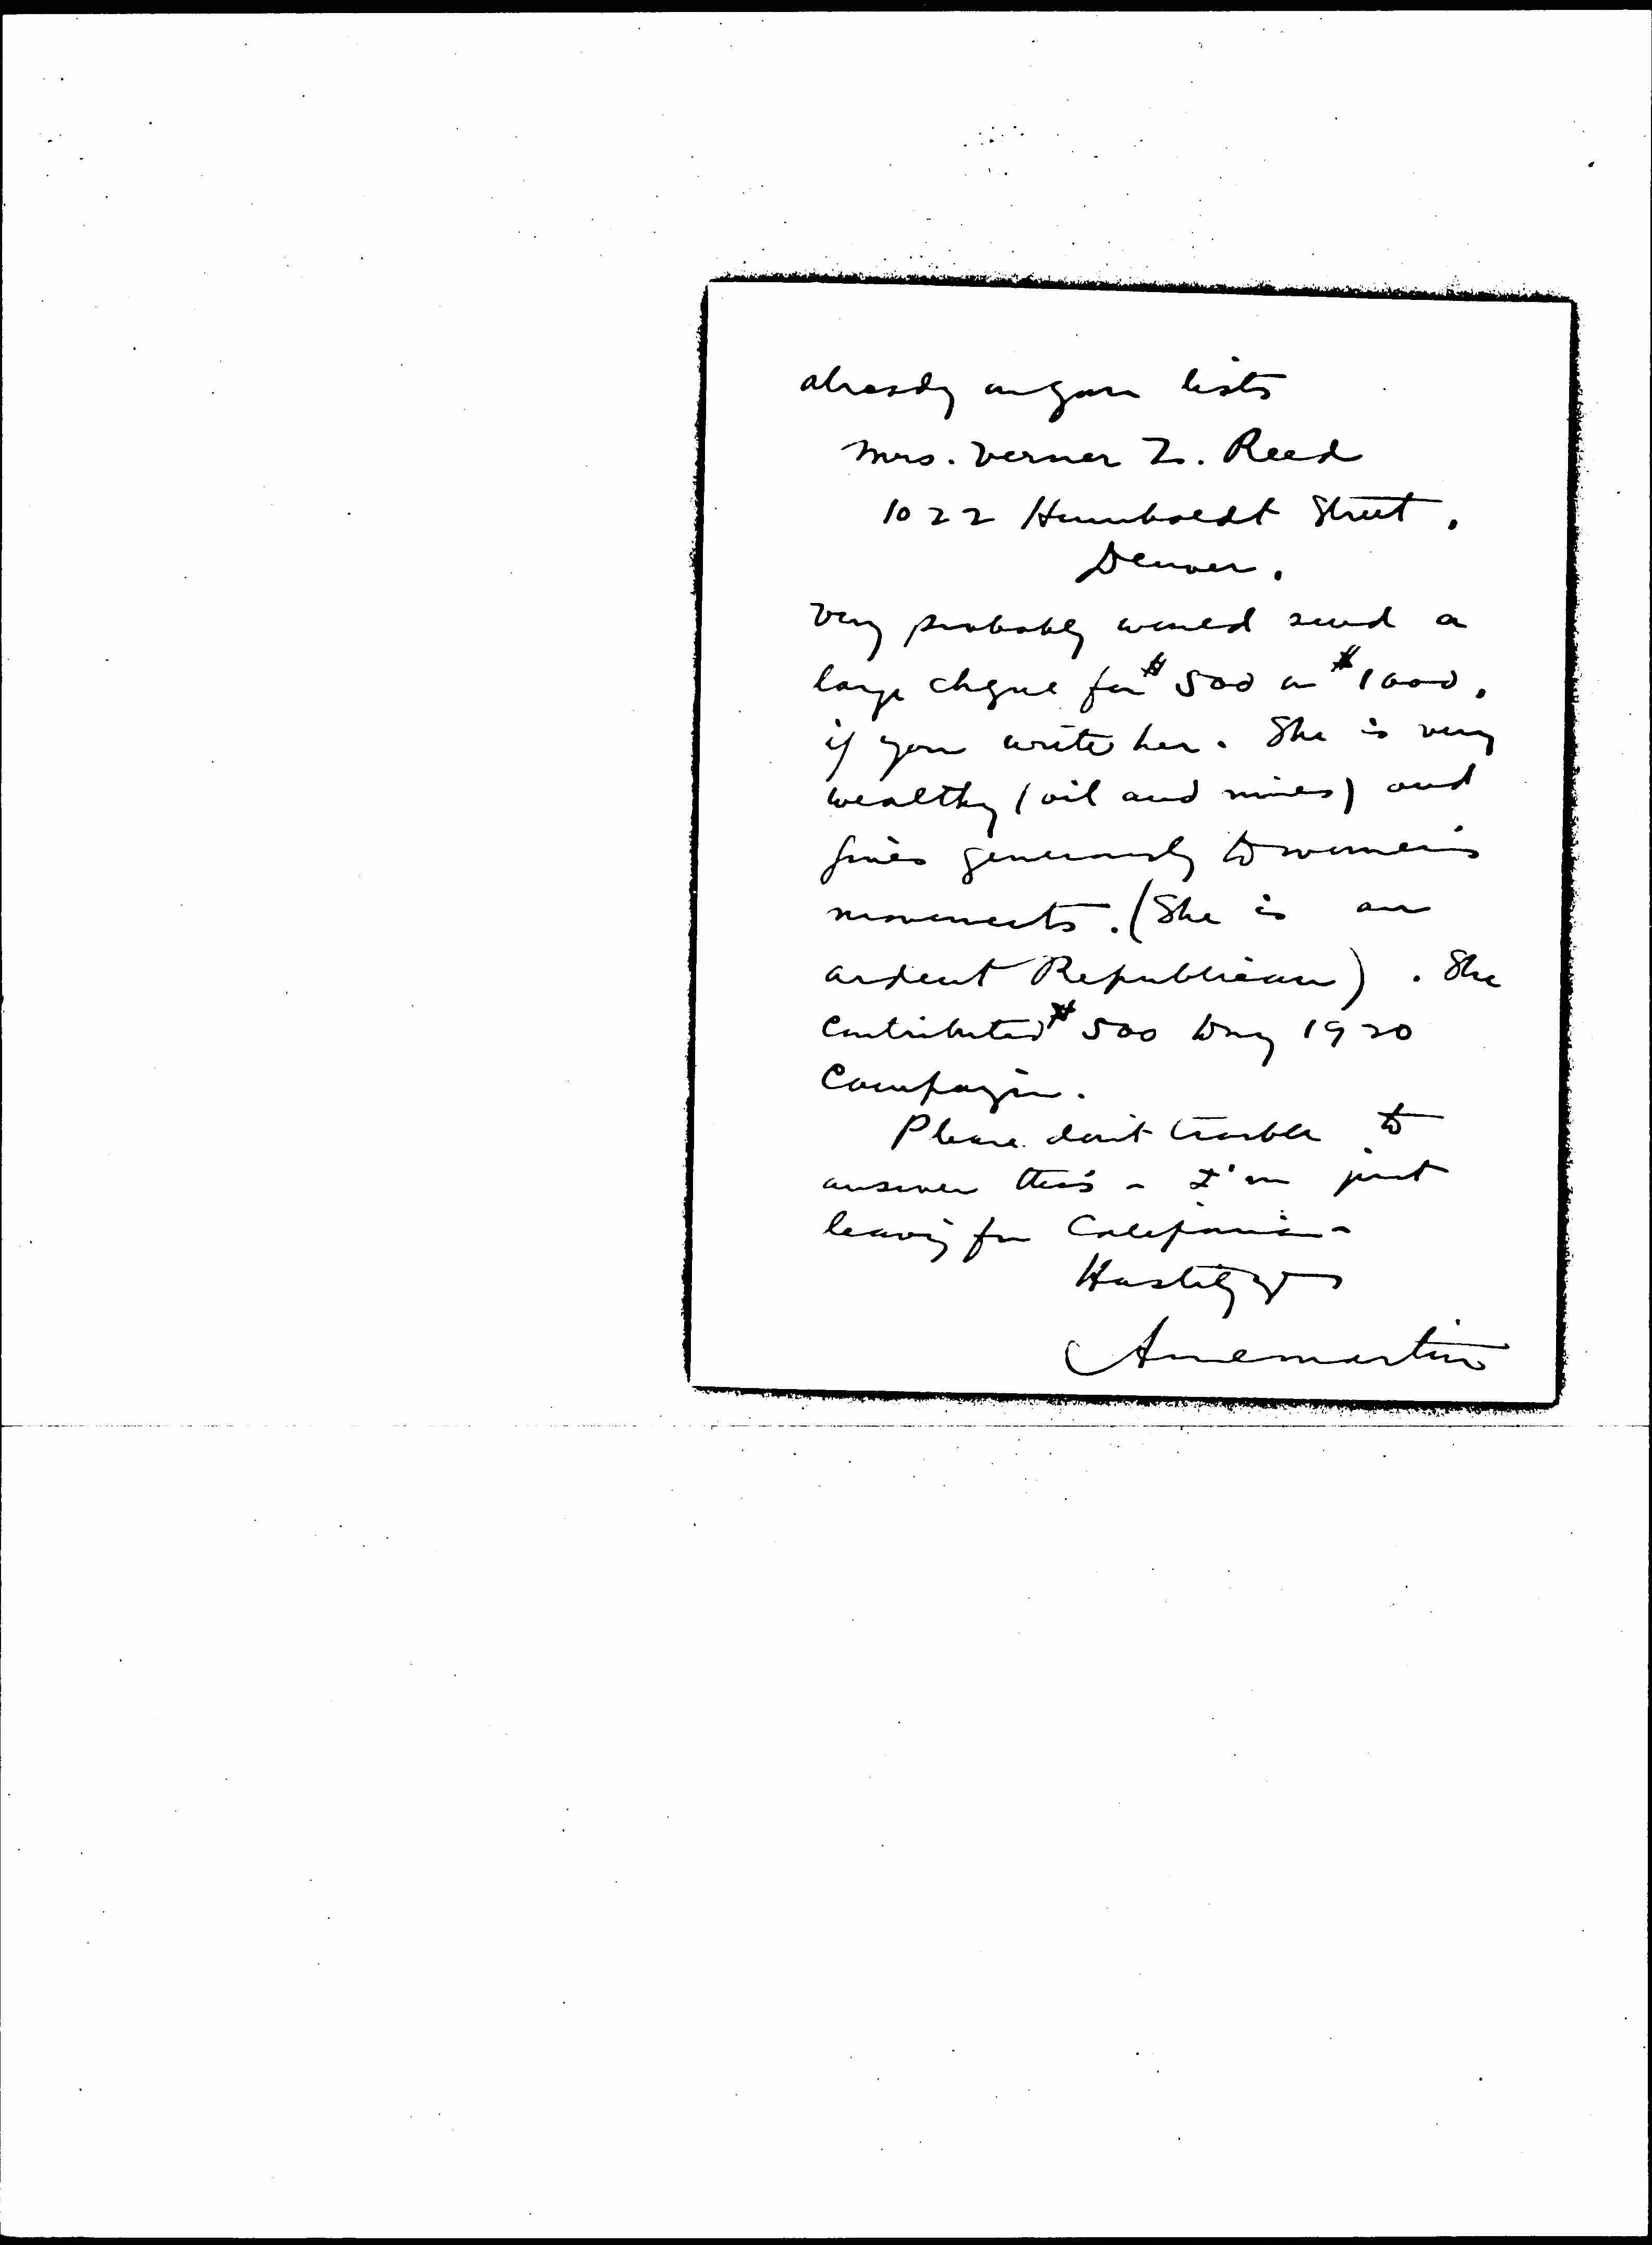 already on your lists
Mrs. Verner Z. Reed
1022 Humboldt Street,
Denver.
Very probably would send a
large cheque for $500 or $1000,
if you write her. She is very
wealthy (oil and mines) and
gives generously to women's
movements. (She is an
ardent Republican). She
contributed $500 to my 1920
Campaign.
Please don't trouble to
answer this - I'm just
leaving for California -
Hastily yrs
Anne Martin